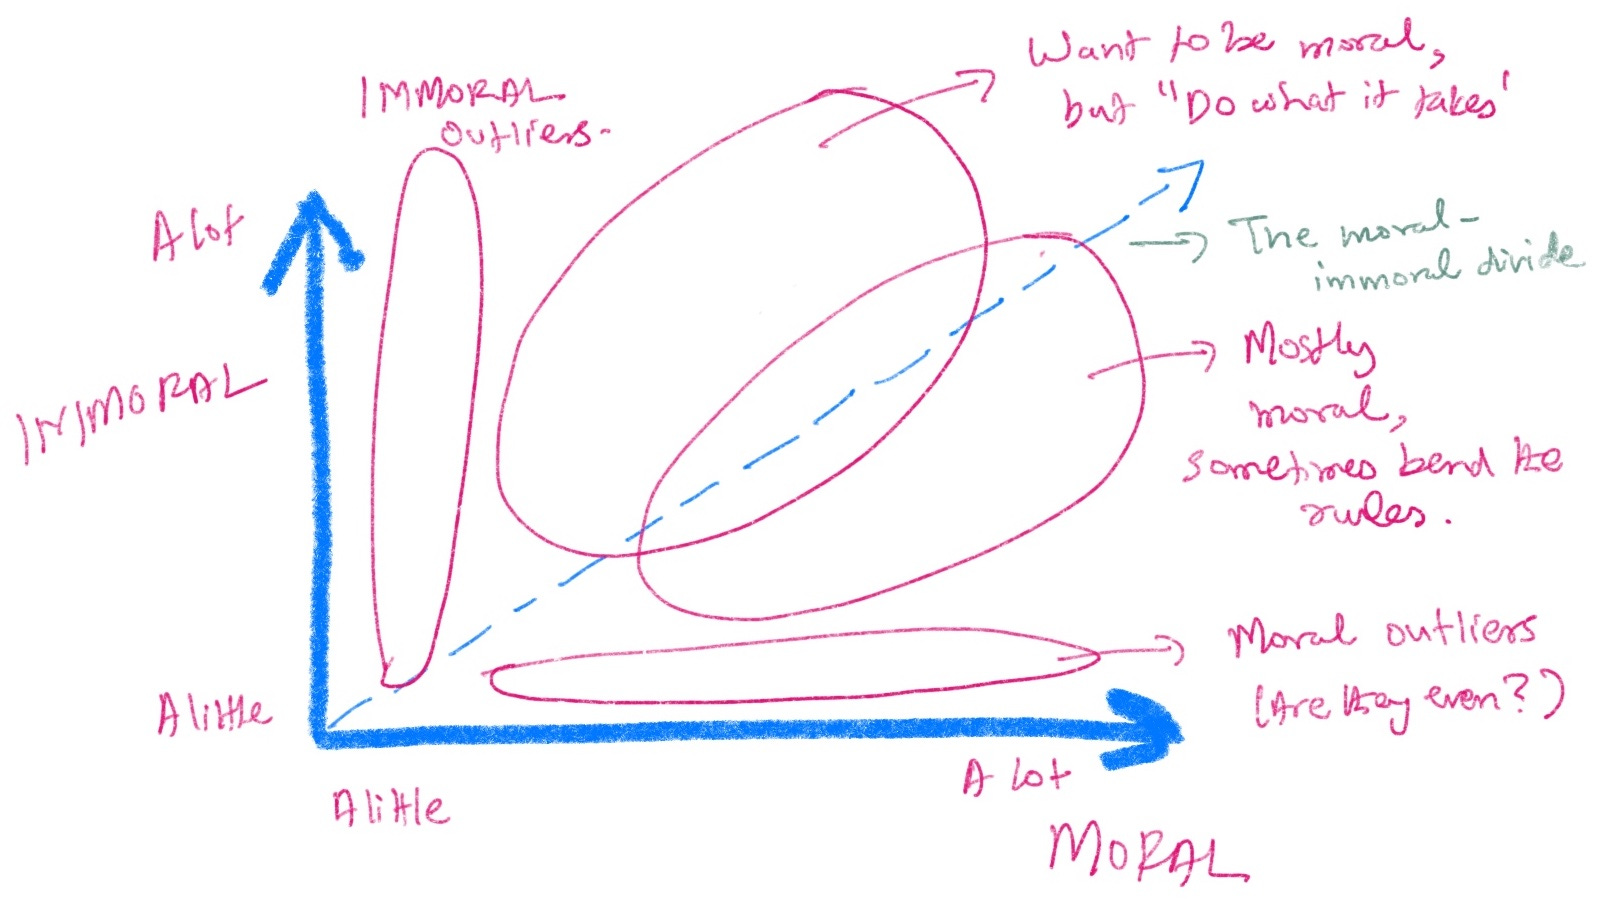 Want to be moral,
but "Do what it takes'
IMMORAL
outliers-
A lot
The moral-
immoral divide
IMMORAL
Mostly
moral,
sometimes bend the
rules.
Moral outliers
(Are they even?)
A little
A lot
A little
MORAL